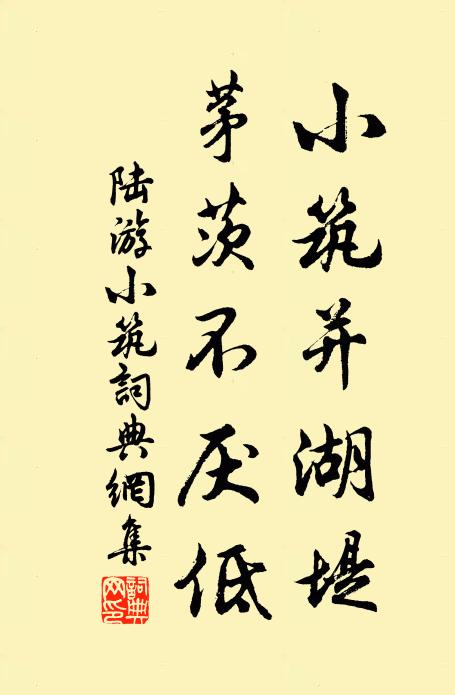 小筑并湖堤
茅茨不厌低
陆游小筑詞典網集
詞典网印